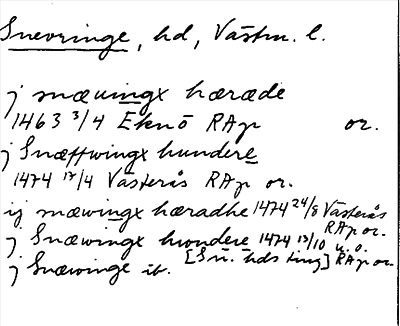 Snevringe, hd, Västm. l.
j snæuingx hæræde
1463 3/4 Eknö RAp or.
j Snæffwingx hundere
1474 17/4 Västerås RAp or.
ij snæwingx hæradhe 1474 24/8 Västerås RAp or.
j Snæwingx hwndere 1474 13/10 u. o.
j Snæwinge ib. [Sn. hds ting] RAp or.